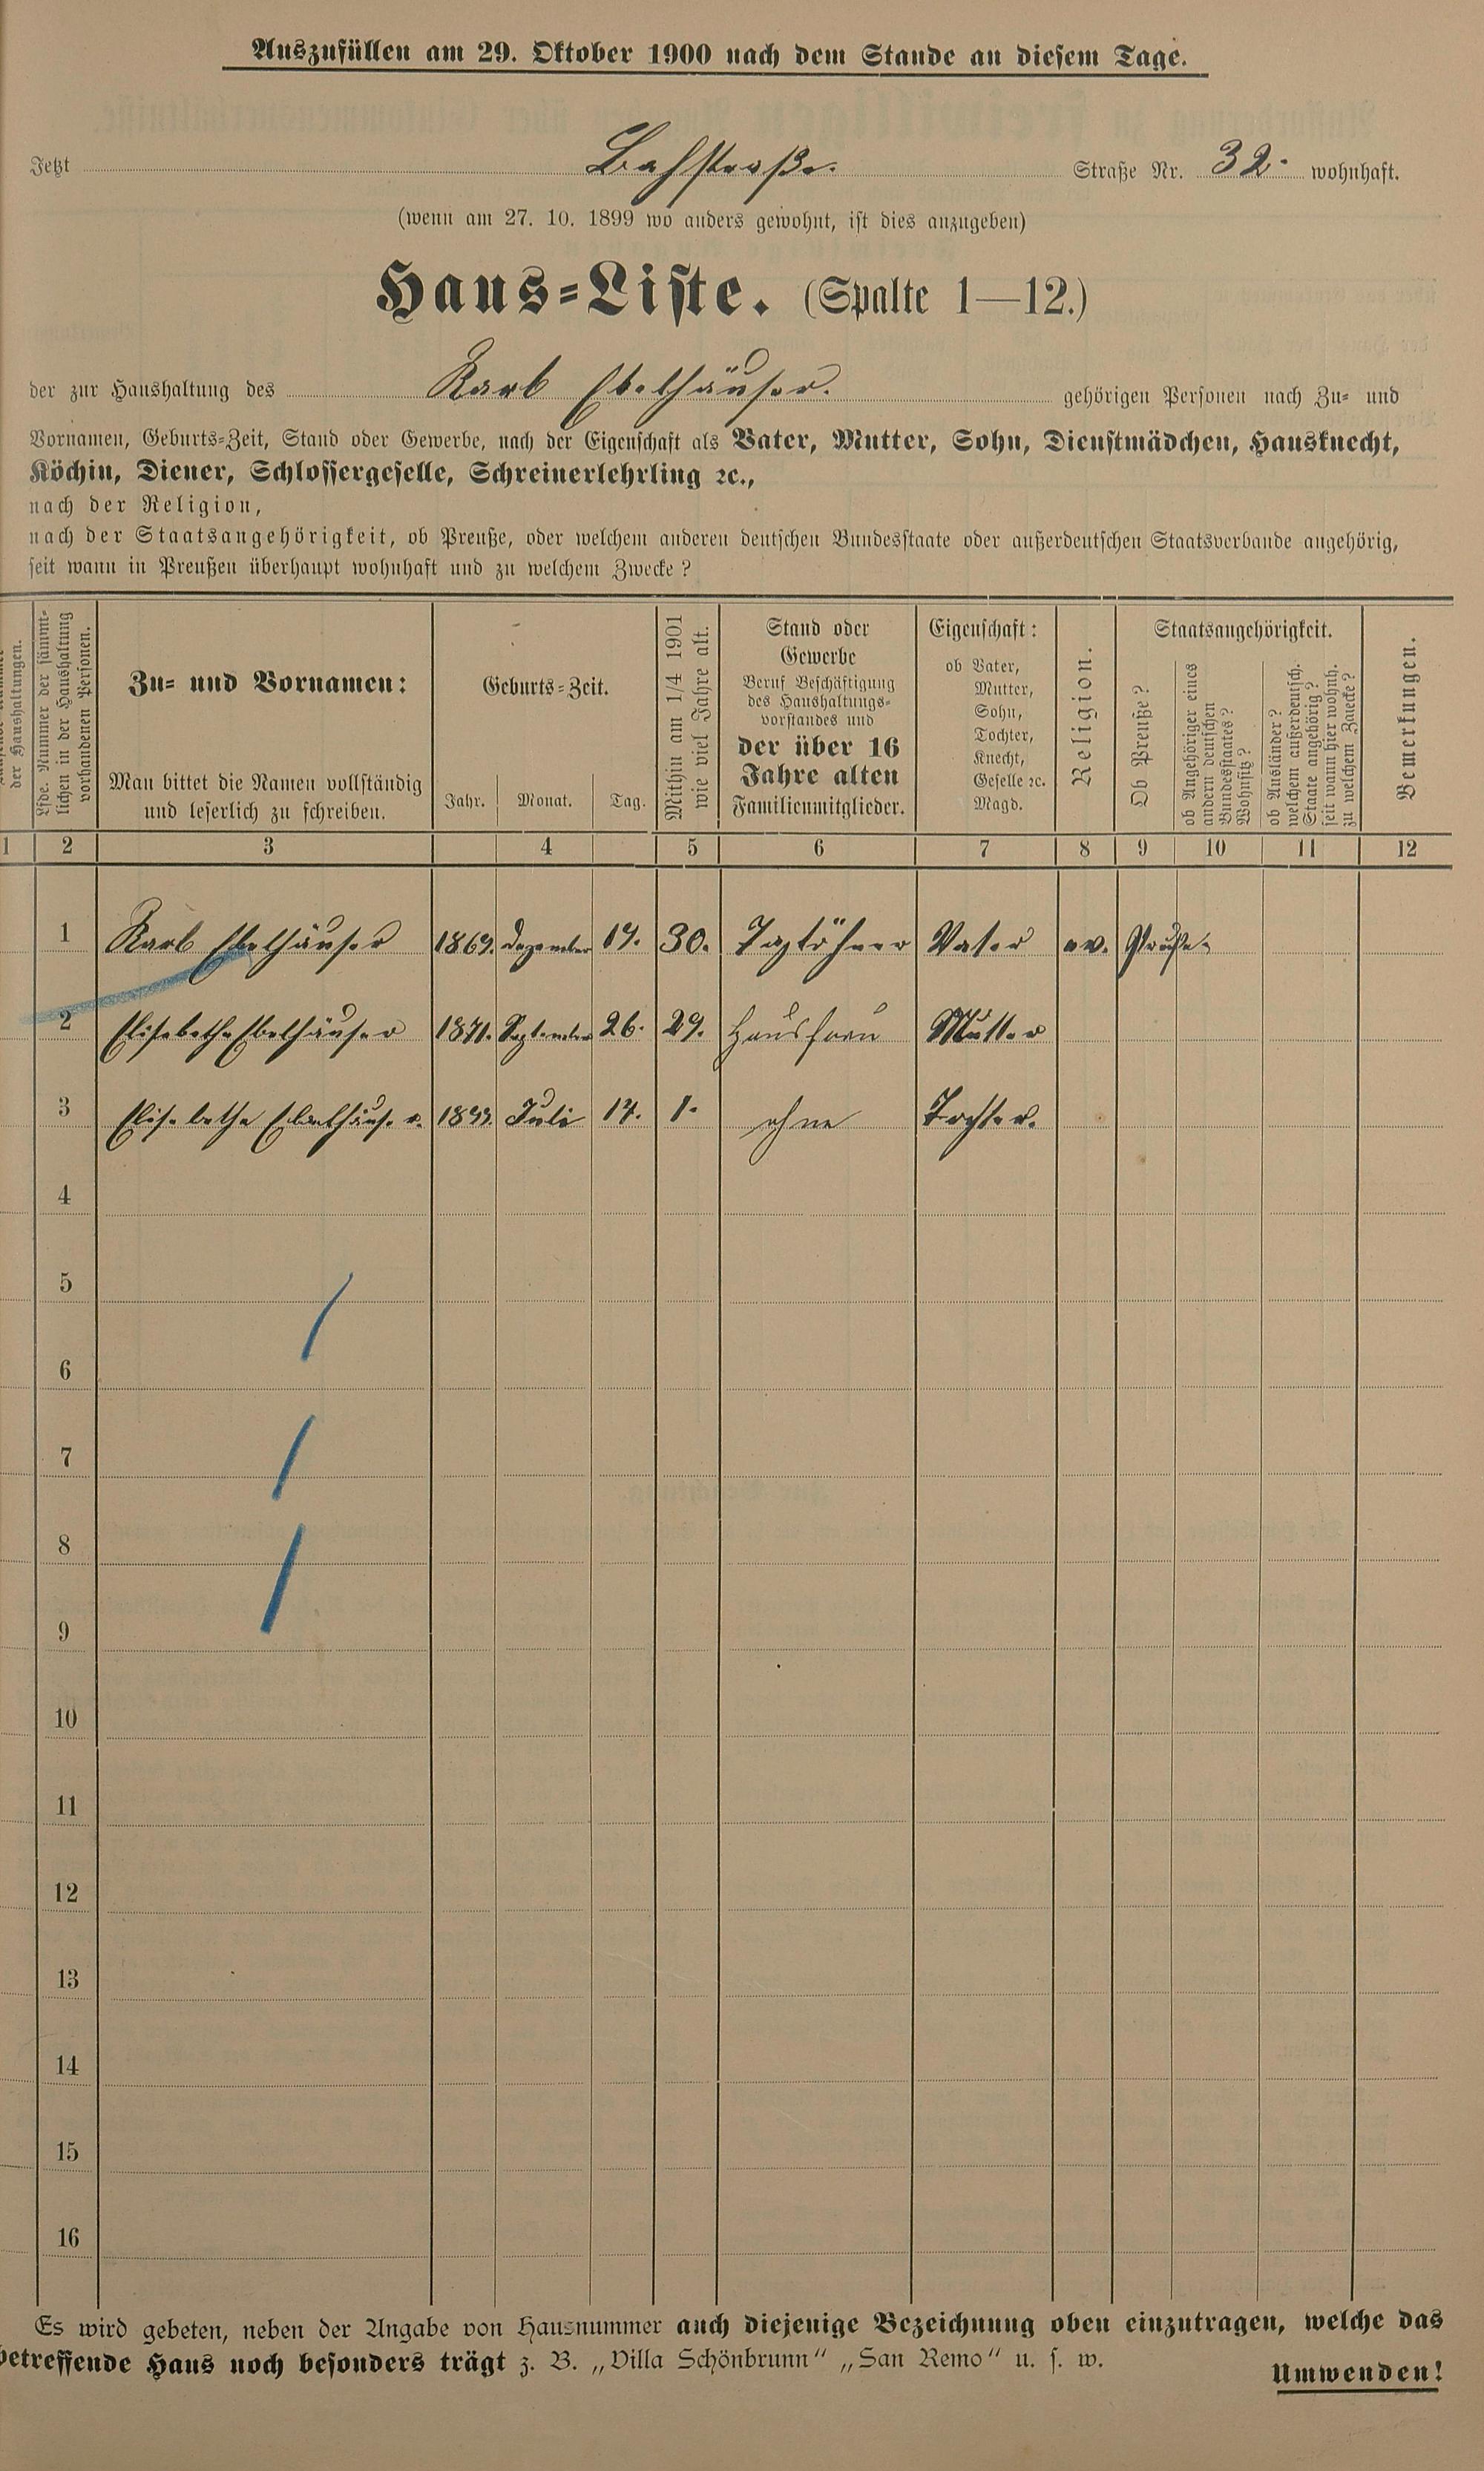 Auszufüllen am 29. Oktober 1900 nach dem Stande an diesem Tage.
Jetzt Straße Nr. 32. wohnhaft.
(wenn am 27. 10. 1899 wo anders gewohnt, ist dies anzugeben)
Haus-Liste. (Spalte 1—12.)
der zur Haushaltung des Karl Ebelhäuser. gehörigen Personen nach Zu- und
Vornamen, Geburts-Zeit, Stand oder Gewerbe, nach der Eigenschaft als Vater, Mutter, Sohn, Dienstmädchen, Hausknecht,
Köchin, Diener, Schlossergeselle, Schreinerlehrling ꝛc.,
nach der Religion,
nach der Staatsangehörigkeit, ob Preuße, oder welchem anderen deutschen Bundesstaate oder außerdeutschen Staatsverbande angehörig,
seit wann in Preußen überhaupt wohnhaft und zu welchem Zwecke?
der Haushaltungen.
Lfde. Nummer der sämmt-
lichen in der Haushaltung
vorhandenen Personen.
Zu- und Vornamen:
Man bittet die Namen vollständig
und leserlich zu schreiben.
Geburts-Zeit.
Jahr. Monat. Tag.
Mithin am 1/4 1901
wie viel Jahre alt.
Stand oder
Gewerbe
Beruf Beschäftigung
des Haushaltungs-
vorstandes und
der über 16
Jahre alten
Familienmitglieder.
Eigenschaft:
ob Vater,
Mutter,
Sohn,
Tochter,
Knecht,
Geselle ꝛc.
Magd.
Religion.
Staatsangehörigkeit.
Ob Preuße?
ob Angehöriger eines
andern deutschen
Bundesstaates?
Wohnsitz?
ob Ausländer?
welchem außerdeutsch.
Staate angehörig?
seit wann hier wohnh.
zu welchem Zwecke?
Bemerkungen.
1 2 3 4 5 6 7 8 9 10 11 12
1 Karl Ebelhäuser 1869. Dezember 19. 30. Taglöhner Vater ev. Preuße
2 Elisabethe Ebelhäuser 1871. September 26. 29. Hausfrau Mutter
3 Elisabethe Ebelhäuser. 1899. Juli 14. 1. ohne Tochter.
4
5
6
7
8
9
10
11
12
13
14
15
16
Es wird gebeten, neben der Angabe von Hausnummer auch diejenige Bezeichnung oben einzutragen, welche das
betreffende Haus noch besonders trägt z. B. „Villa Schönbrunn“ „San Remo“ u. s. w.
Umwenden!